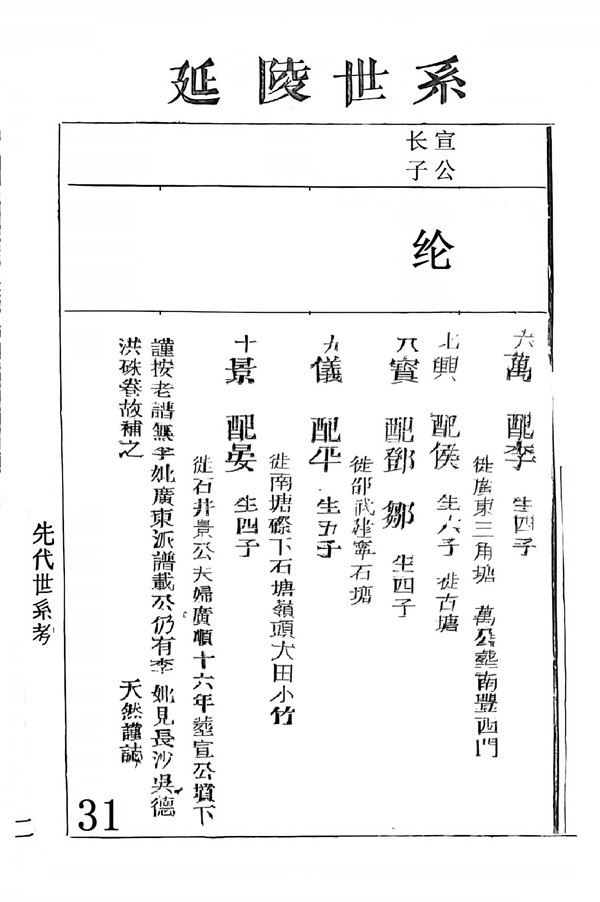 延陵世系
宣公
长子
纶
六萬 配李 生四子
徙廣東三角塘 萬公塟南豐西門
七興 配侯 生六子 徙古塘
八實 配鄧 鄒 生四子
徙邵武建寧石塘
九儀 配平 生五子
徙南塘磜下石塘嶺頭大田小竹
十景 配晏 生四子
徙石井景公夫婦廣順十六年塟宣公墳下
謹按老譜無李妣廣東派譜載公仍有李妣見長沙吳德
洪硃卷故補之 天然謹誌
先代世系考
二
31